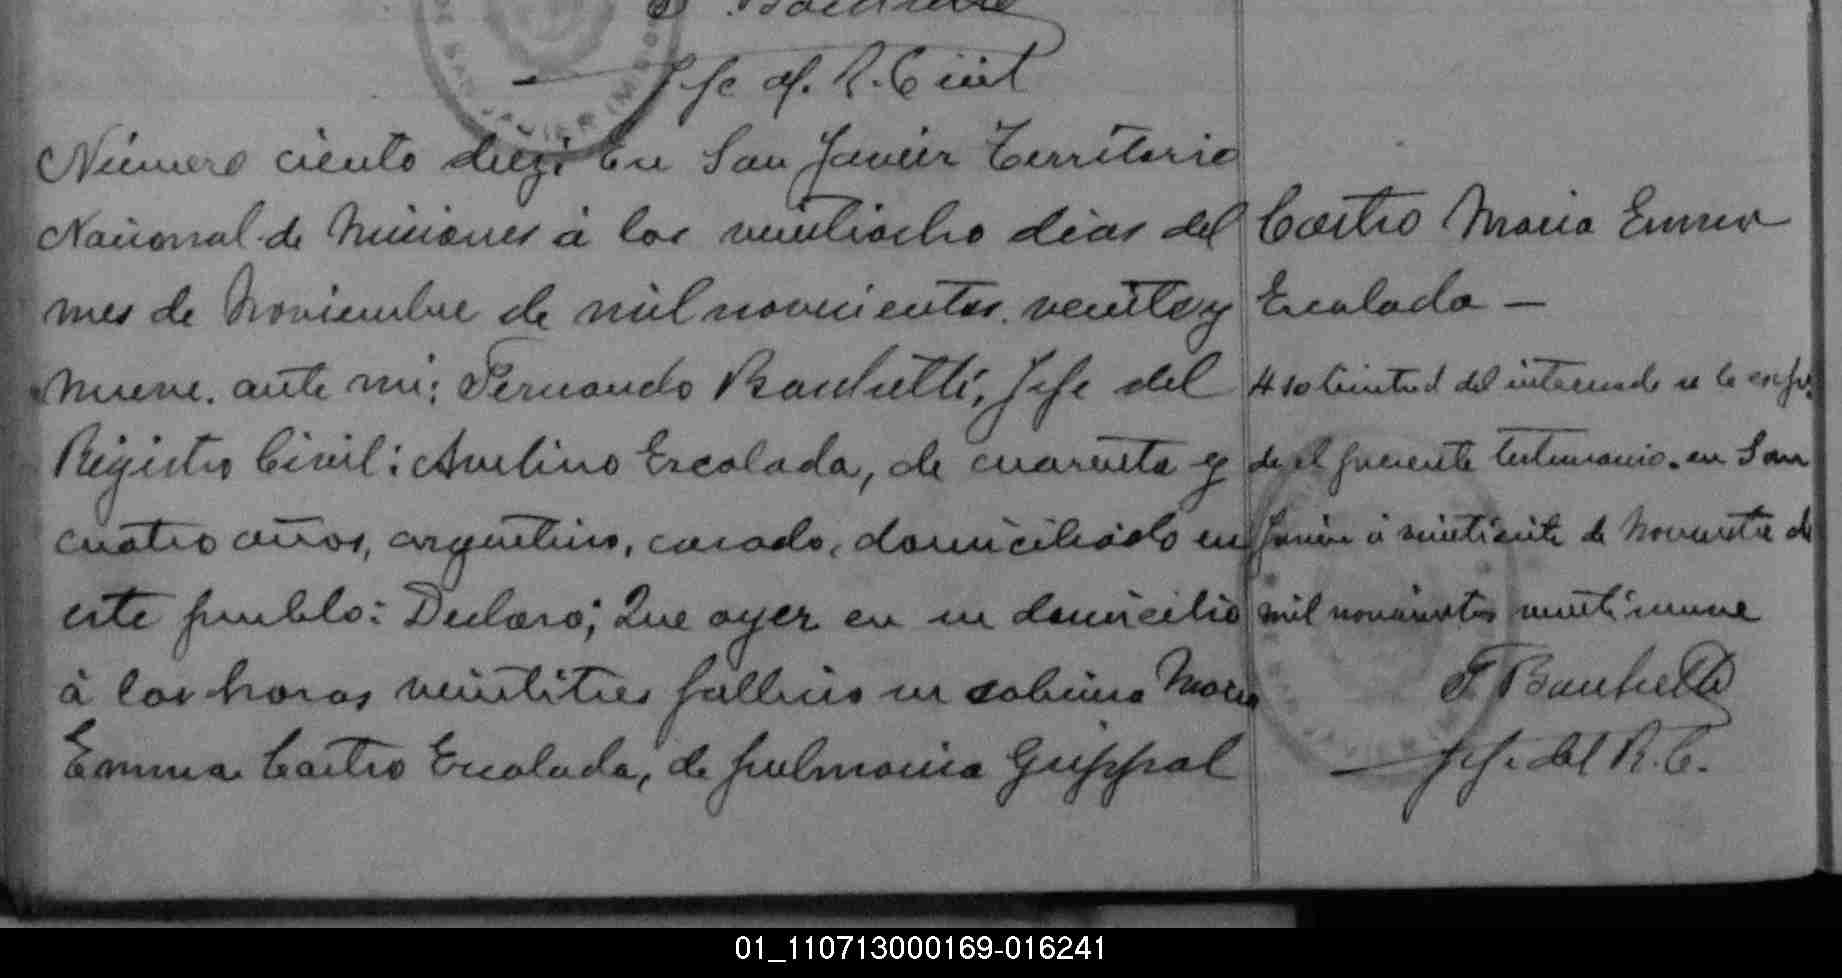 F. Bacchetti
Jefe del R. Civil
SAN JAVIER (MIS
Número ciento diez: En San Javier Territorio
Nacional de Misiones á los veintiocho dias del
mes de Noviembre de mil novecientos veinte y
nueve. ante mi: Fernando Bacchetti, Jefe del
Registro Civil: Avelino Escalada, de cuarenta y
cuatro años, argentino, casado, domiciliado en
este pueblo: Declaró; Que ayer en su domicilio
á las horas veintitres falleció su sobrina Maria
Emma Castro Escalada, de pulmonia Grippal
Castro Maria Emma
Escalada —
A solicitud del interesado se le expi-
de el presente testimonio. en San
Javier á veintisiete de Noviembre de
mil novecientos veintinueve
F. Bacchetti
Jefe del R. C.
01_110713000169-016241